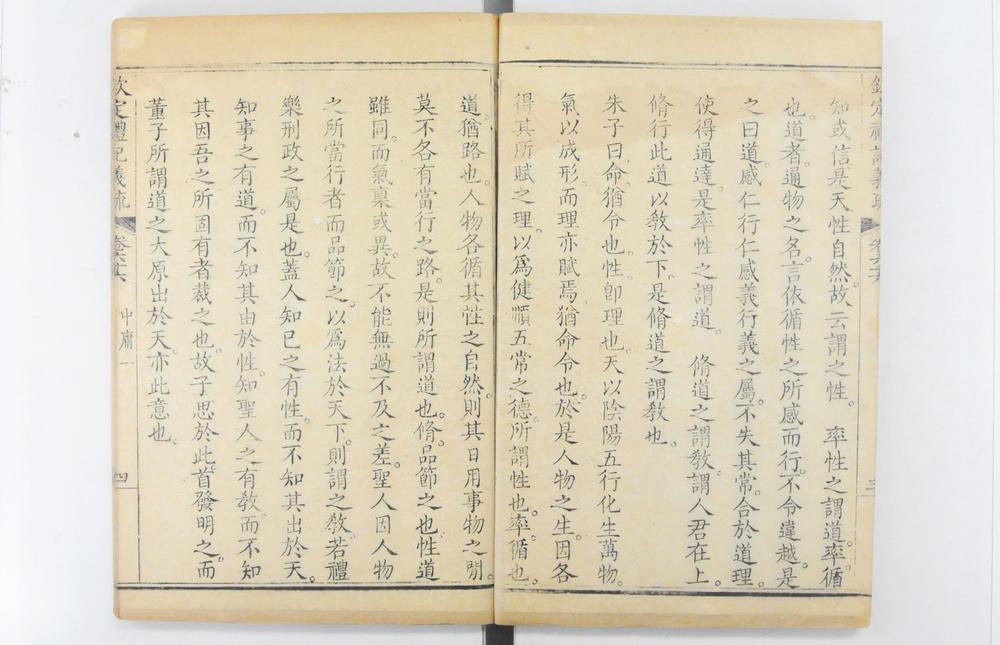 欽定禮記義疏 卷六十六 三
知或信是天性自然故云謂之性 率性之謂道率循
也道者通物之名言依循性之所感而行不令違越是
之曰道感仁行仁感義行義之屬不失其常合於道理
使得通達是率性之謂道 脩道之謂教謂人君在上
脩行此道以敎於下是脩道之謂敎也
朱子曰命猶令也性卽理也天以陰陽五行化生萬物
氣以成形而理亦賦焉猶命令也於是人物之生因各
得其所賦之理以爲健順五常之德所謂性也率循也
道猶路也人物各循其性之自然則其日用事物之閒
莫不各有當行之路是則所謂道也脩品節之也性道
雖同而氣稟或異故不能無過不及之差聖人因人物
之所當行者而品節之以爲法於天下則謂之敎若禮
樂刑政之屬是也蓋人知己之有性而不知其出於天
知事之有道而不知其由於性知聖人之有敎而不知
其因吾之所固有者裁之也故子思於此首發明之而
董子所謂道之大原出於天亦此意也
欽定禮記義疏 卷六十六 中庸一 四